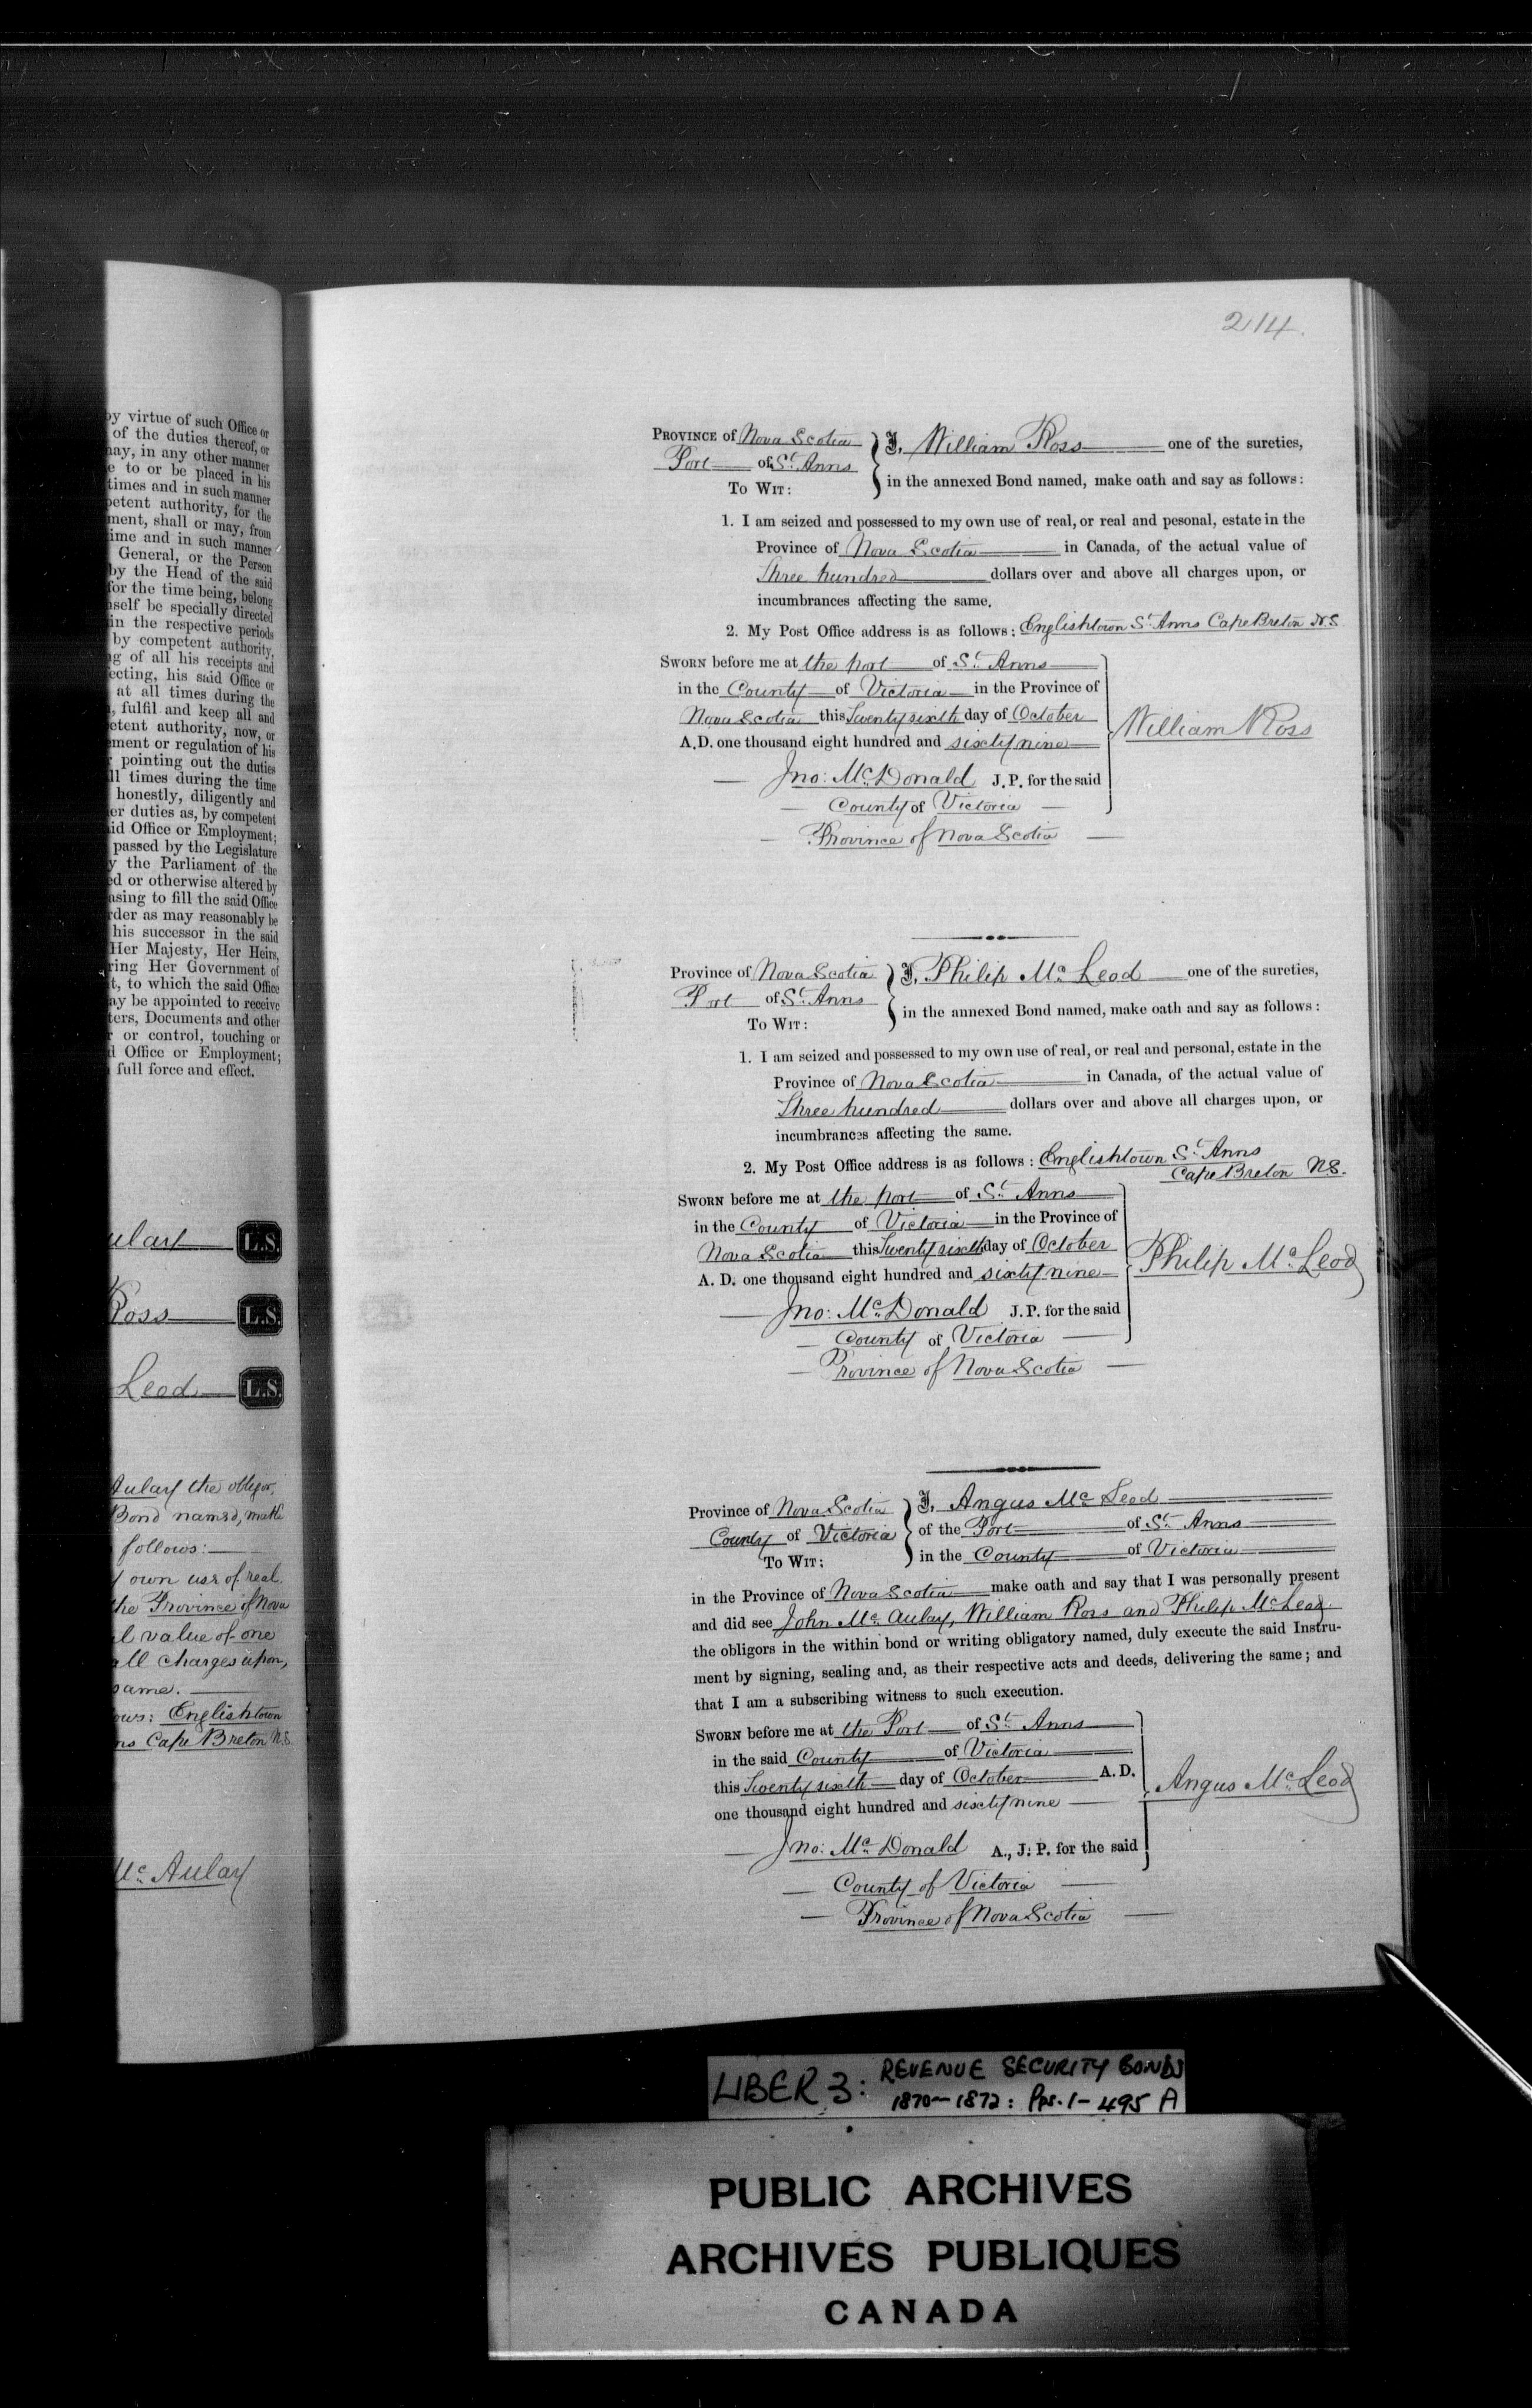 by virtue of such Office or
of the duties thereof, or
may, in any other manner
e to or be placed in his
times and in such manner
petent authority, for the
ment, shall or may, from
ime and in such manner
General, or the Person
by the Head of the said
for the time being, belong
nself be specially directed
in the respective periods
by competent authority,
ng of all his receipts and
ecting, his said Office or
at all times during the
, fulfil and keep all and
etent authority, now, or
ement or regulation of his
r pointing out the duties
ll times during the time
honestly, diligently and
er duties as, by competent
id Office or Employment;
passed by the Legislature
y the Parliament of the
ed or otherwise altered by
asing to fill the said Office
rder as may reasonably be
his successor in the said
Her Majesty, Her Heirs,
ring Her Government of
t, to which the said Office
ay be appointed to receive
ters, Documents and other
r or control, touching or
d Office or Employment;
full force and effect.
ulay L.S.
Ross L.S.
Leod L.S.
Aulay the obligor,
Bond named, make
follows:
y own use of real
the Province of Nova
l value of one
all charges upon,
same.
ows: Englishtown
ns Cape Breton N.S.
Mc Aulay
214.
PROVINCE of Nova Scotia
Port of St. Anns
TO WIT:
I, William Ross one of the sureties,
in the annexed Bond named, make oath and say as follows:
1. I am seized and possessed to my own use of real, or real and pesonal, estate in the
Province of Nova Scotia in Canada, of the actual value of
Three hundred dollars over and above all charges upon, or
incumbrances affecting the same.
2. My Post Office address is as follows: Englishtown St. Anns Cape Breton N.S.
SWORN before me at the port of St. Anns
in the County of Victoria in the Province of
Nova Scotia this Twenty sixth day of October
A.D. one thousand eight hundred and sixty nine
William Ross
Jno: Mc. Donald J.P. for the said
County of Victoria
Province of Nova Scotia
Province of Nova Scotia
Port of St. Anns
TO WIT:
I, Philip Mc. Leod one of the sureties,
in the annexed Bond named, make oath and say as follows:
1. I am seized and possessed to my own use of real, or real and personal, estate in the
Province of Nova Scotia in Canada, of the actual value of
Three hundred dollars over and above all charges upon, or
incumbrances affecting the same.
2. My Post Office address is as follows: Englishtown St. Anns
Cape Breton N.S.
SWORN before me at the port of St. Anns
in the County of Victoria in the Province of
Nova Scotia this Twenty sixth day of October
A. D. one thousand eight hundred and sixty nine
Philip Mc. Leod
Jno: Mc. Donald J.P. for the said
County of Victoria
Province of Nova Scotia
Province of Nova Scotia
County of Victoria
TO WIT:
I, Angus Mc. Leod
of the Port of St. Anns
in the County of Victoria
in the Province of Nova Scotia make oath and say that I was personally present
and did see John Mc. Aulay, William Ross and Philip Mc. Leod.
the obligors in the within bond or writing obligatory named, duly execute the said Instru-
ment by signing, sealing and, as their respective acts and deeds, delivering the same; and
that I am a subscribing witness to such execution.
SWORN before me at the Port of St. Anns
in the said County of Victoria
this Twenty sixth day of October A.D.
one thousand eight hundred and sixty nine
Angus Mc. Leod
Jno: Mc. Donald A., J. P. for the said
County of Victoria
Province of Nova Scotia
LIBER 3: REVENUE SECURITY BONDS
1870-1872: Pps. 1-495 A
PUBLIC ARCHIVES
ARCHIVES PUBLIQUES
CANADA